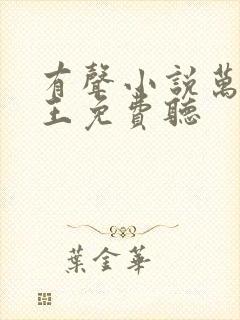 有聲小説萬
王免費聽
葉金華